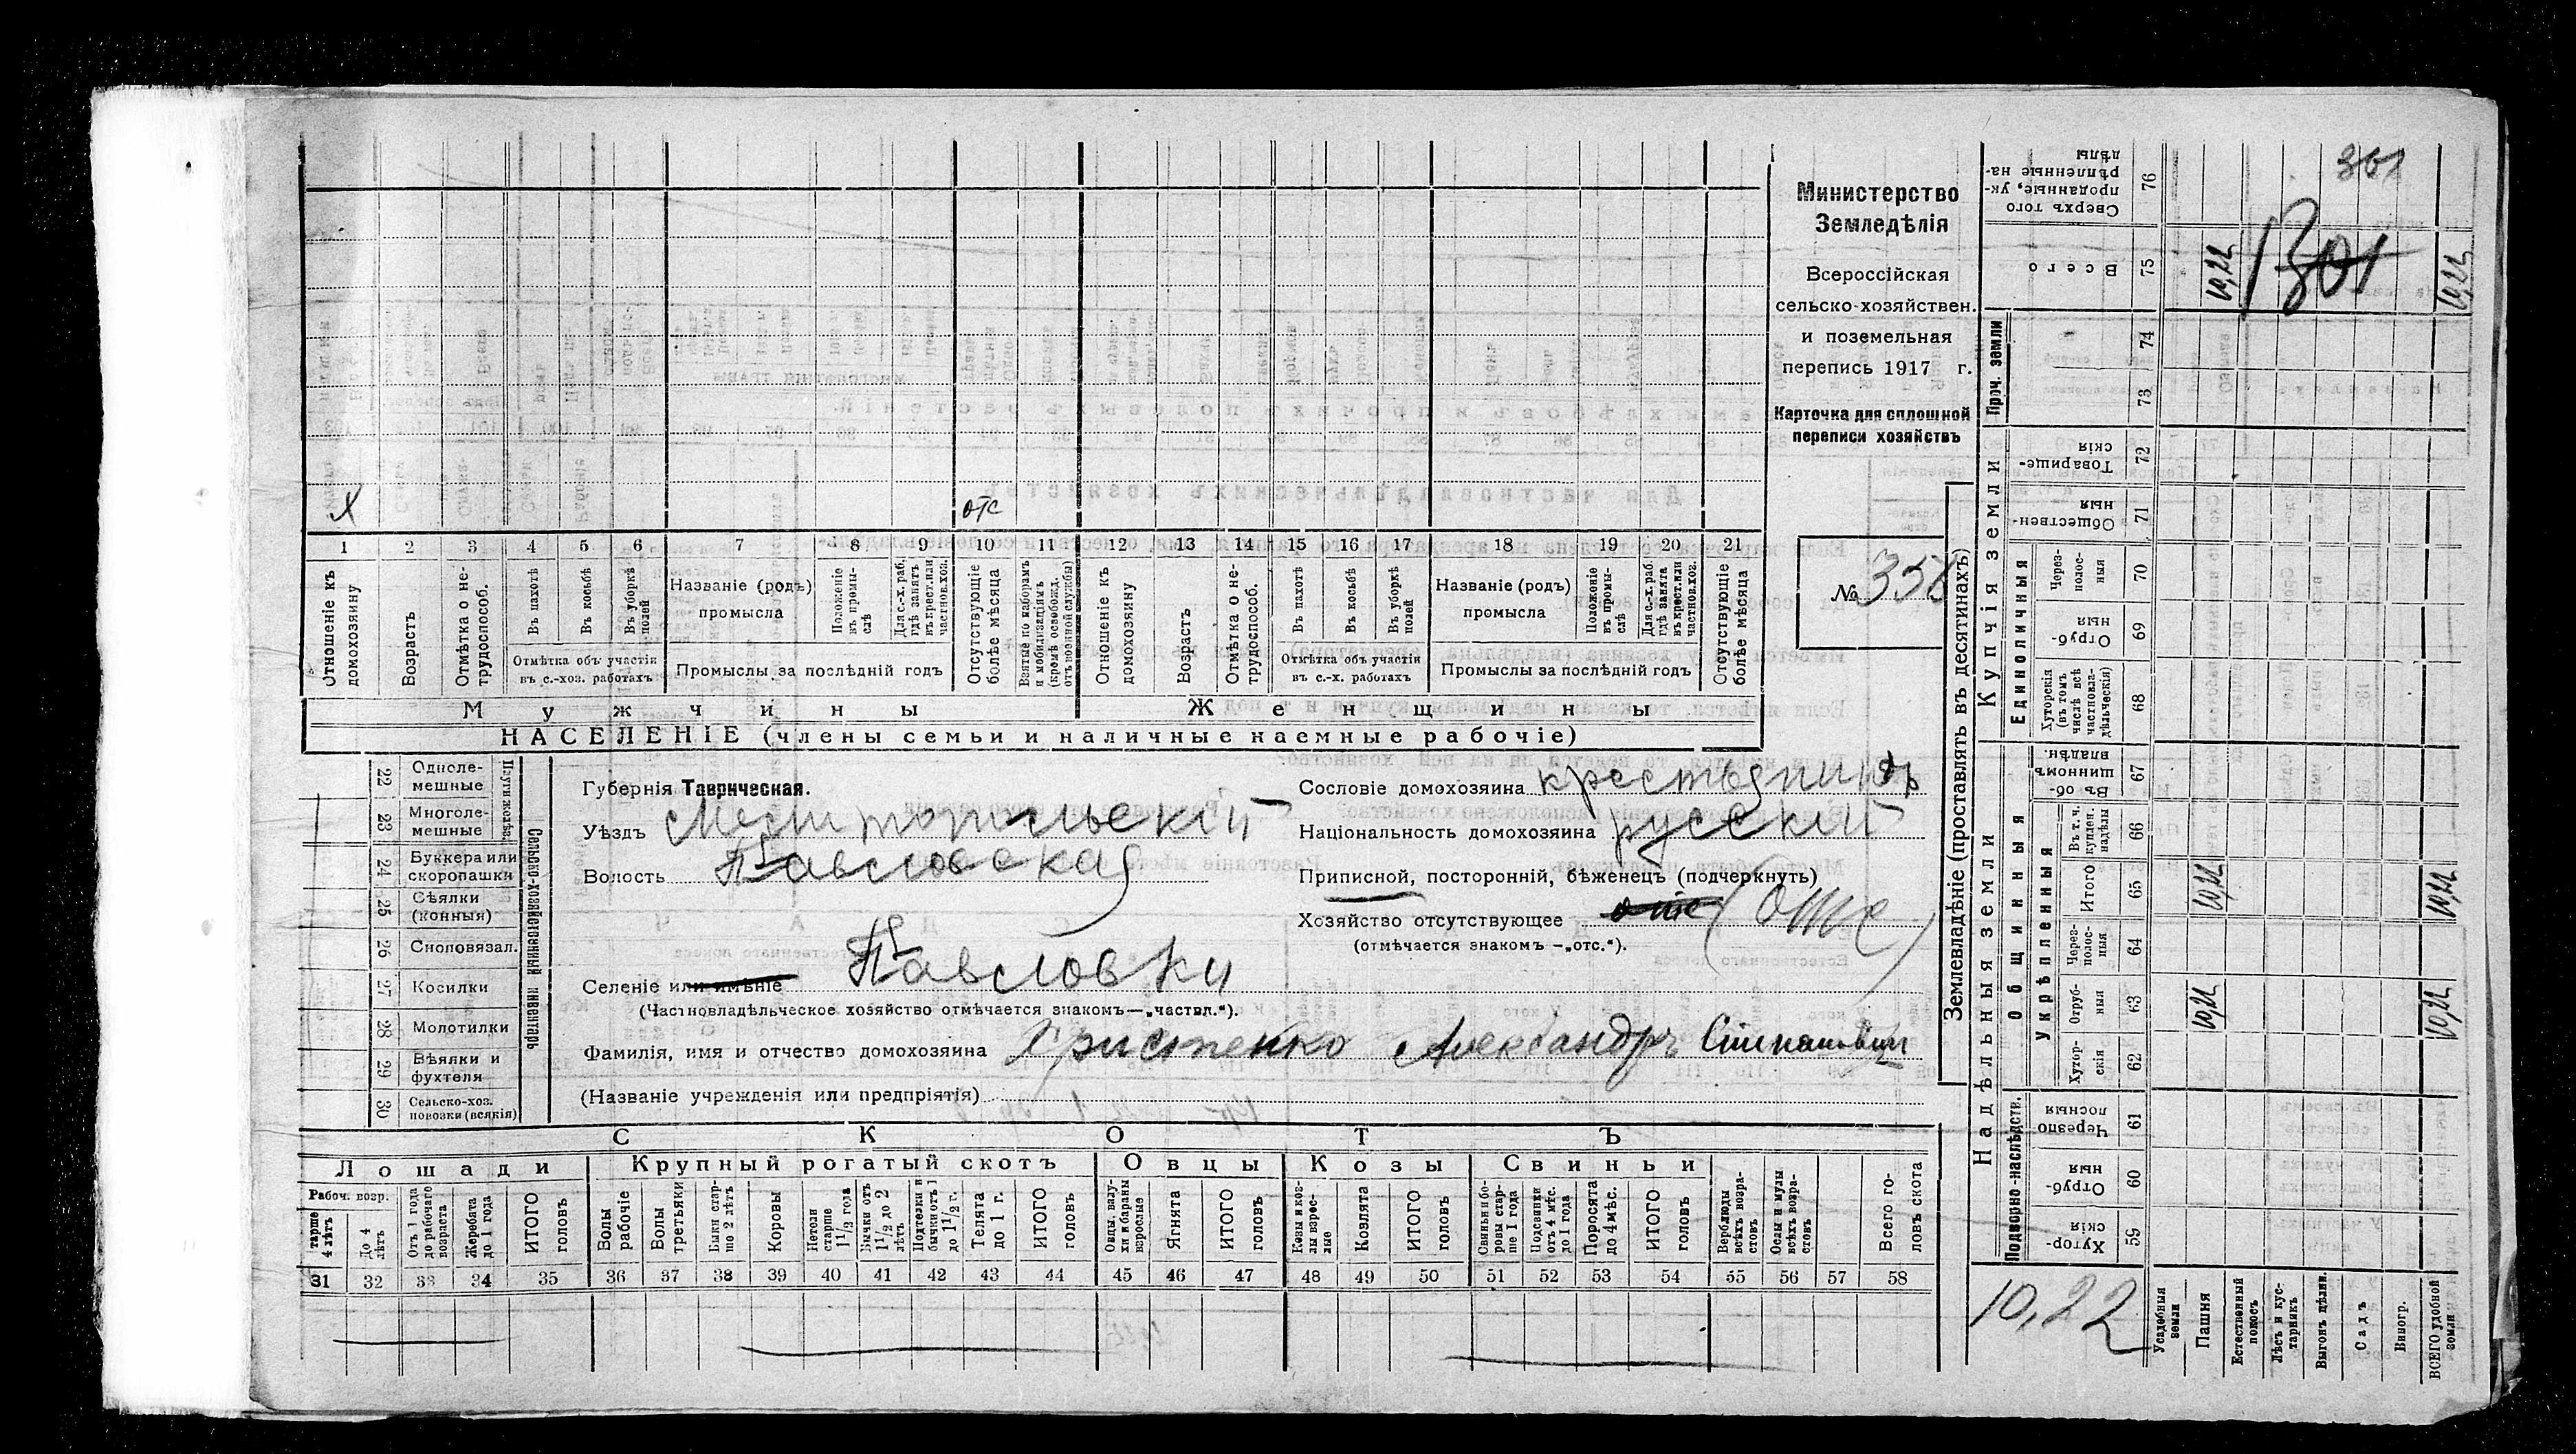 Министерство
Земледѣлія
Всероссійская
сельско-хозяйствен.
и поземельная
перепись 1917 г.
Карточка для сплошной
переписи хозяйствъ
№ 358
х
отс
1 2 3 4 5 6 7 8 9 10 11 12 13 14 15 16 17 18 19 20 21
Отношеніе къ домохозяину
Возрастъ
Отмѣтка о не-трудоспособ.
Въ пахотѣ
Въ косьбѣ
Въ уборкѣ полей
Отмѣтка объ участіи въ с.-хоз. работахъ
Названіе (родъ) промысла
Положеніе въ промы-слѣ
Для с.-х. раб. гдѣ занятъ въ крест. или частнов. хоз.
Промыслы за послѣдній годъ
Отсутствующіе болѣе мѣсяца
Взятые по наборамъ и мобилизаціямъ (кромѣ освобожд. отъ военной службы)
Отношеніе къ домохозяину
Возрастъ
Отмѣтка о не-трудоспособ.
Въ пахотѣ
Въ косьбѣ
Въ уборкѣ полей
Отмѣтка объ участіи въ с.-х. работахъ
Названіе (родъ) промысла
Положеніе въ промы-слѣ
Для с.-х. раб. гдѣ занята въ крест. или частнов. хоз.
Промыслы за послѣдній годъ
Отсутствующіе болѣе мѣсяца
Мужчины
Женщины
НАСЕЛЕНІЕ (члены семьи и наличные наемные рабочіе)
22 Однолемешные
23 Многолемешные
24 Буккера или скоропашки
25 Сѣялки (конныя)
26 Сноповязал.
27 Косилки
28 Молотилки
29 Вѣялки и фухтеля
30 Сельско-хоз. повозки (всякія)
Сельско-хозяйственный инвентарь
Губернія Таврическая.
Уѣздъ Мелитопольскій
Волость Павловская
Селеніе или имѣніе Павловки
(Частновладѣльческое хозяйство отмѣчается знакомъ—„частвл.“).
Фамилія, имя и отчество домохозяина Христенко Александръ Степановичъ
(Названіе учрежденія или предпріятія)
Сословіе домохозяина крестьянинъ
Національность домохозяина русскій
Приписной, посторонній, бѣженецъ (подчеркнуть)
Хозяйство отсутствующее отс (отс)
(отмѣчается знакомъ —„отс.“).
СКОТЪ
Лошади
Крупный рогатый скотъ
Овцы
Козы
Свиньи
Рабоч. возр.
старше 4 лѣтъ
До 4 лѣтъ
Отъ 1 года до рабочаго возраста
Жеребята до 1 года
ИТОГО головъ
Волы рабочіе
Волы третьяки
Быки стар-ше 2 лѣтъ
Коровы
Нетели старше 1½ года
Бычки отъ 1½ до 2 лѣтъ
Подтелки и бычки отъ 1 до 1½ г.
Телята до 1 г.
ИТОГО головъ
Овцы, валу-хи и бараны взрослые
Ягнята
ИТОГО головъ
Козы и коз-лы взрос-лые
Козлята
ИТОГО головъ
Свиньи и бо-ровы стар-ше 1 года
Подсвинки отъ 4 мѣс. до 1 года
Поросята до 4 мѣс.
ИТОГО головъ
Верблюды всѣхъ возра-стовъ
Ослы и мулы всѣхъ возра-стовъ
Всего го-ловъ скота
31 32 33 34 35 36 37 38 39 40 41 42 43 44 45 46 47 48 49 50 51 52 53 54 55 56 57 58
Землевладѣніе (проставлять въ десятинахъ)
Сверхъ того проданные, ук-рѣпленные на-дѣлы 76
Всего 75
Проч. земли 74 73
Купчія земли
Товарище-скія 72
Обществен-ныя 71
Единоличныя
Через-полос-ныя 70
Отруб-ныя 69
Хуторскія (въ томъ числѣ всѣ частновла-дѣльческія) 68
Надѣльныя земли
Общинныя
Въ об-щинномъ владѣн. 67
Укрѣпленныя
Въ т. ч. куплен. надѣлы 66
Итого 65
Через-полос-ныя 64
Отруб-ныя 63
Хутор-скія 62
Подворно-наслѣдств.
Черезпо-лосныя 61
Отруб-ныя 60
Хутор-скія 59
Усадебныя земли
Пашня
Естественный покосъ
Лѣсъ и кус-тарникъ
Выгонъ
Садъ
Виногр.
ВСЕГО удобной земли
361
10,22
1301
10,22
10,22
10,22
10,22
10,22
10,22